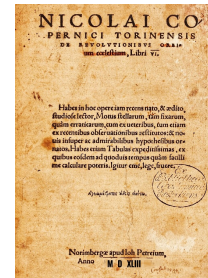 NICOLAI CO
PERNICI TORINENSIS
DE REVOLVTIONIBVS ORBI-
um cœlestium, Libri VI.
Habes in hoc opere iam recens nato, & ædito,
studiose lector, Motus stellarum, tam fixarum,
quàm erraticarum, cum ex ueteribus, tum etiam
ex recentibus obseruationibus restitutos: & no-
uis insuper ac admirabilibus hypothesibus or-
natos. Habes etiam Tabulas expeditissimas, ex
quibus eosdem ad quoduis tempus quàm facilli
me calculare poteris. Igitur eme, lege, fruere.
Norimbergæ apud Ioh. Petreium,
Anno M D XLIII